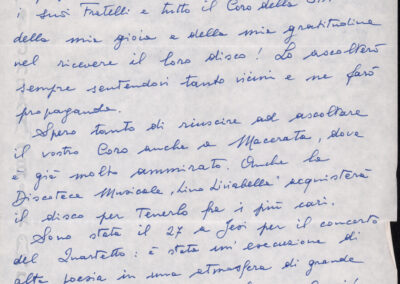 i suoi Fratelli e tutto il Coro della
della mia gioia e della mia gratitudine
nel ricevere il loro disco! Lo ascolterò
sempre sentendovi tanto vicini e ne farò
propaganda.
Spero tanto di riuscire ad ascoltare
il vostro Coro anche a Macerata, dove
è già molto ammirato. Anche la
Discoteca Musicale "Lino Liviabella" acquisterà
il disco per tenerlo fra i più cari.
Sono stata il 27 a Jesi per il concerto
del Quartetto: è stata un'esecuzione di
alta poesia in una atmosfera di grande